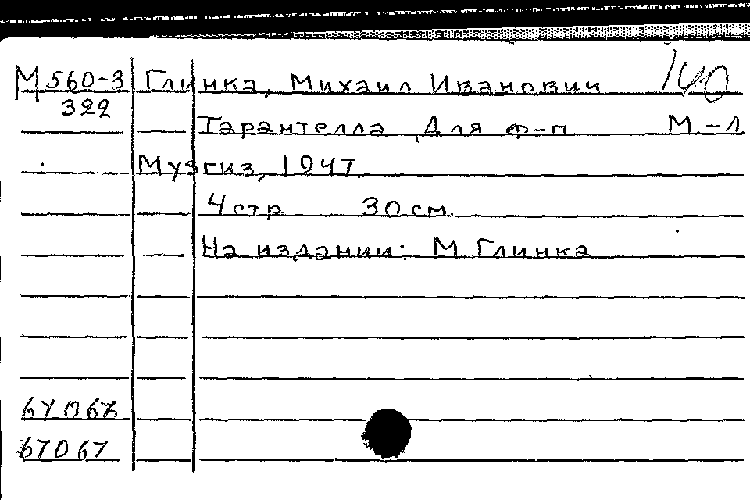 М560-3 Глинка, Михаил Иванович 140
322
Тарантелла Для ф-п М.-Л
Музгиз, 1947
4 стр 30 см.
На издании: М Глинка
67067
67067